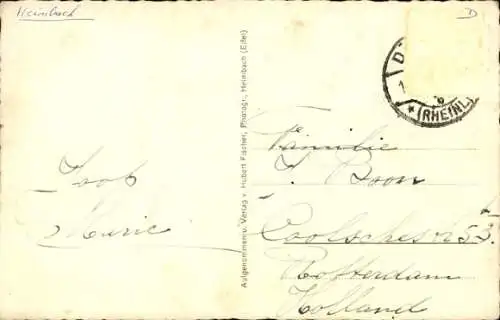 Heimbach
D
D
1
* (RHEINL.)
Aufgenommen u. Verlag v. Hubert Fischer, Photogr., Heimbach (Eifel)
Joop
Marie
Familie
J. Boon
53
Rotterdam
Holland